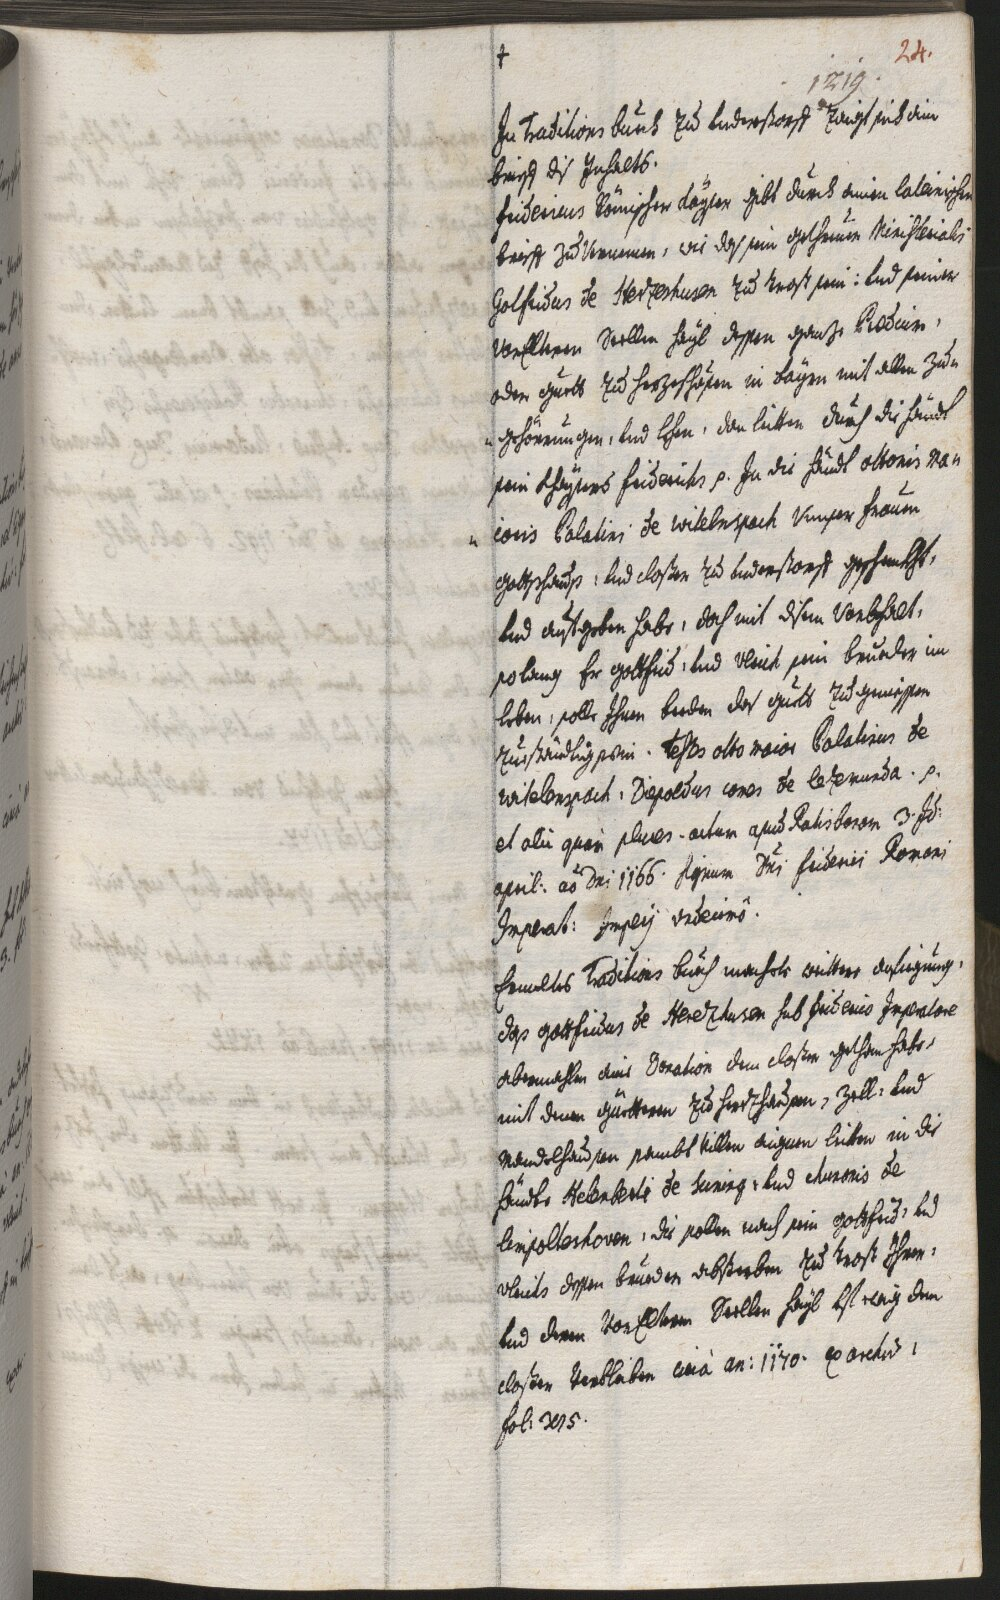 +
24.
1219.
In Traditions buech zu Understorff zaigt sich ain
brieff dis Inhalts.
fridericus Römischer Kayser gibt durch ainen lateinischen
brieff zu Vernemen, wie das sein getheurer Ministerialis
Golfridus de Herzeshusen zu trost sein: und seiner
VorElteren Seellen hayl dessen ganze Praedium,
oder guett zu herzeshausen in bayrn mit allen Zue-
gehörrungen, und Ehrn, den leitten durch die händt
sein Khaysers friderichs p. In die händt ottonis Ma-
ioris Palatini de witelenspach Unnser frauen
gottshaus: und closter zu Understorff geschenckht,
und aufgeben habe, doch mit disem Vorbehalt,
so lang Er gottfrid, und Ulrich sein brueder im
leben, solle Ihnen beeden das guett zu geniessen
zueständig sein. Testes otto maior Palatinus de
witelenspach, Diepoldus comes de lechsmunda. p.
et alii quam plures. actum apud Ratisbonam 3. Id:
april: aō Dni 1166. signum Dni friderici Romani
Imperat:
Ermeltes Traditions buech machet weittere anzaigung,
das gottfridus de Heretzhusen sub friderico Imperatore
abermahlen aine Donation dem closter gethan habe,
mit denen güetteren zu hertzhausen, Zell: und
Randelshausen sambt Villen aignen leitten in die
händte Helenberti de Luning: und Chunonis de
leupolteshoven, die sollen nach sein gottfrids, und
Ulrichs dessen brueders absterben zu trost Ihrer:
und deren VorElteren Seellen hayl Ewig dem
closter Verbleiben circa an: 1170. ex archiv:
fol: